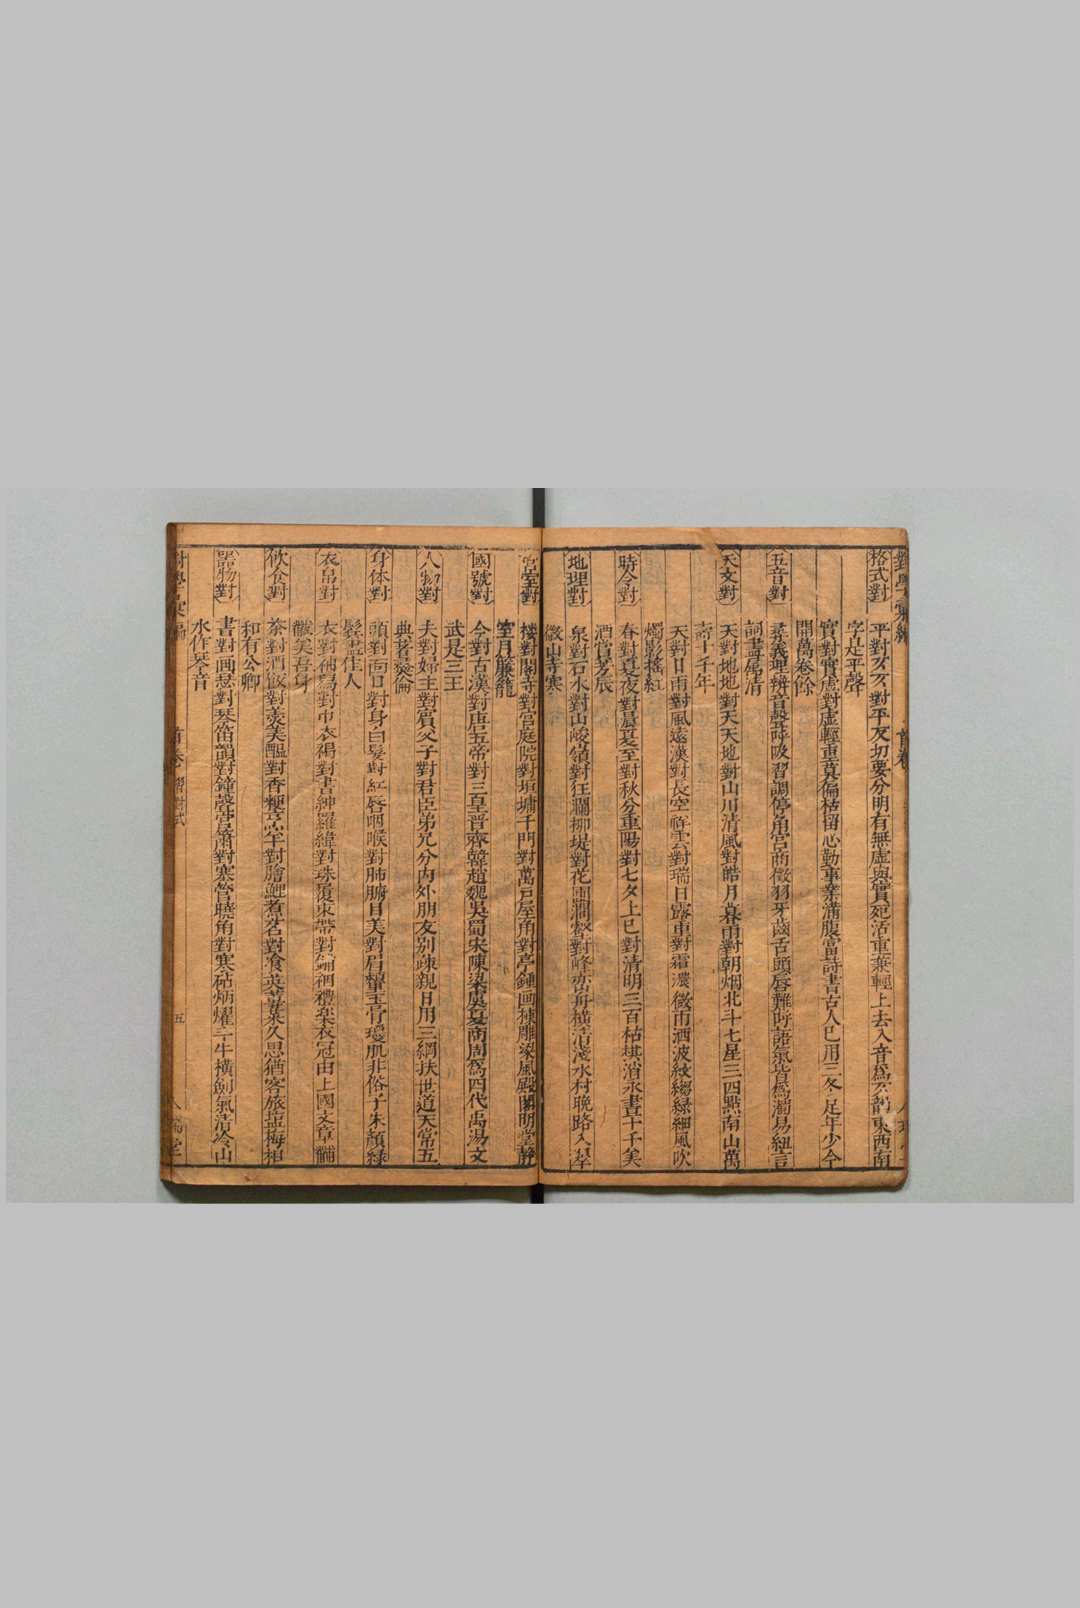 格式對
平對仄仄對平反切要分明有無虛與實死活重兼輕上去入音爲仄韵東西南
字是平聲
實對實虛對虛輕重莫偏枯留心勤事業滿腹富詩書古人已用三冬足年少今
開萬卷餘
五音對
義理辨音聲呼吸習調停角宮商徵羽牙齒舌頭唇難呼語氣皆爲濁易紐言
詞盡屬清
天文對
天對地地對天天地對山川清風對皓月暮雨對朝烟北斗七星三四點南山萬
壽十千年
天對日雨對風遠漢對長空祥雲對瑞日露重對霜濃微雨洒波紋縐綠細風吹
燭影搖紅
時令對
春對夏夜對晨夏至對秋分重陽對七夕上巳對清明三百枯棋消永晝十千美
酒賞芳辰
地理對
泉對石水對山峻嶺對狂瀾柳堤對花圃澗壑對峰巒舟橫清淺水村晚路入翠
微山寺寒
宮室對
樓對閣寺對宮庭院對垣墉千門對萬戶屋角對亭鍾画棟雕梁風殿閣明堂靜
室月簾籠
國號對
今對古漢對唐五帝對三皇晋齊韓趙魏吳蜀宋陳梁虞夏商周爲四代禹湯文
武是三王
人物對
夫對婦主對賓父子對君臣弟兄分內外朋友別疎親日用三綱扶世道天常五
典著彛倫
身体對
頭對面口對身白髮對紅唇咽喉對肺腑目美對眉顰玉骨瓊肌非俗子朱顏綠
鬢盡佳人
衣帛對
衣對衲舄對巾衣褐對書紳羅緯對珠履束帶對鋪裀禮楽衣冠由上國文章黼
黻美吾身
飲食對
茶對酒飯對羮美醞對香粳烹羊對膾鯉煮茗對飡英葵久思猶客旅塩梅相
和有公卿
噐物對
書對画瑟對琴笛韻對鐘聲管蕭對寒管曉角對寒砧炳燿斗牛橫劍氣清泠山
水作琴音
首卷
五